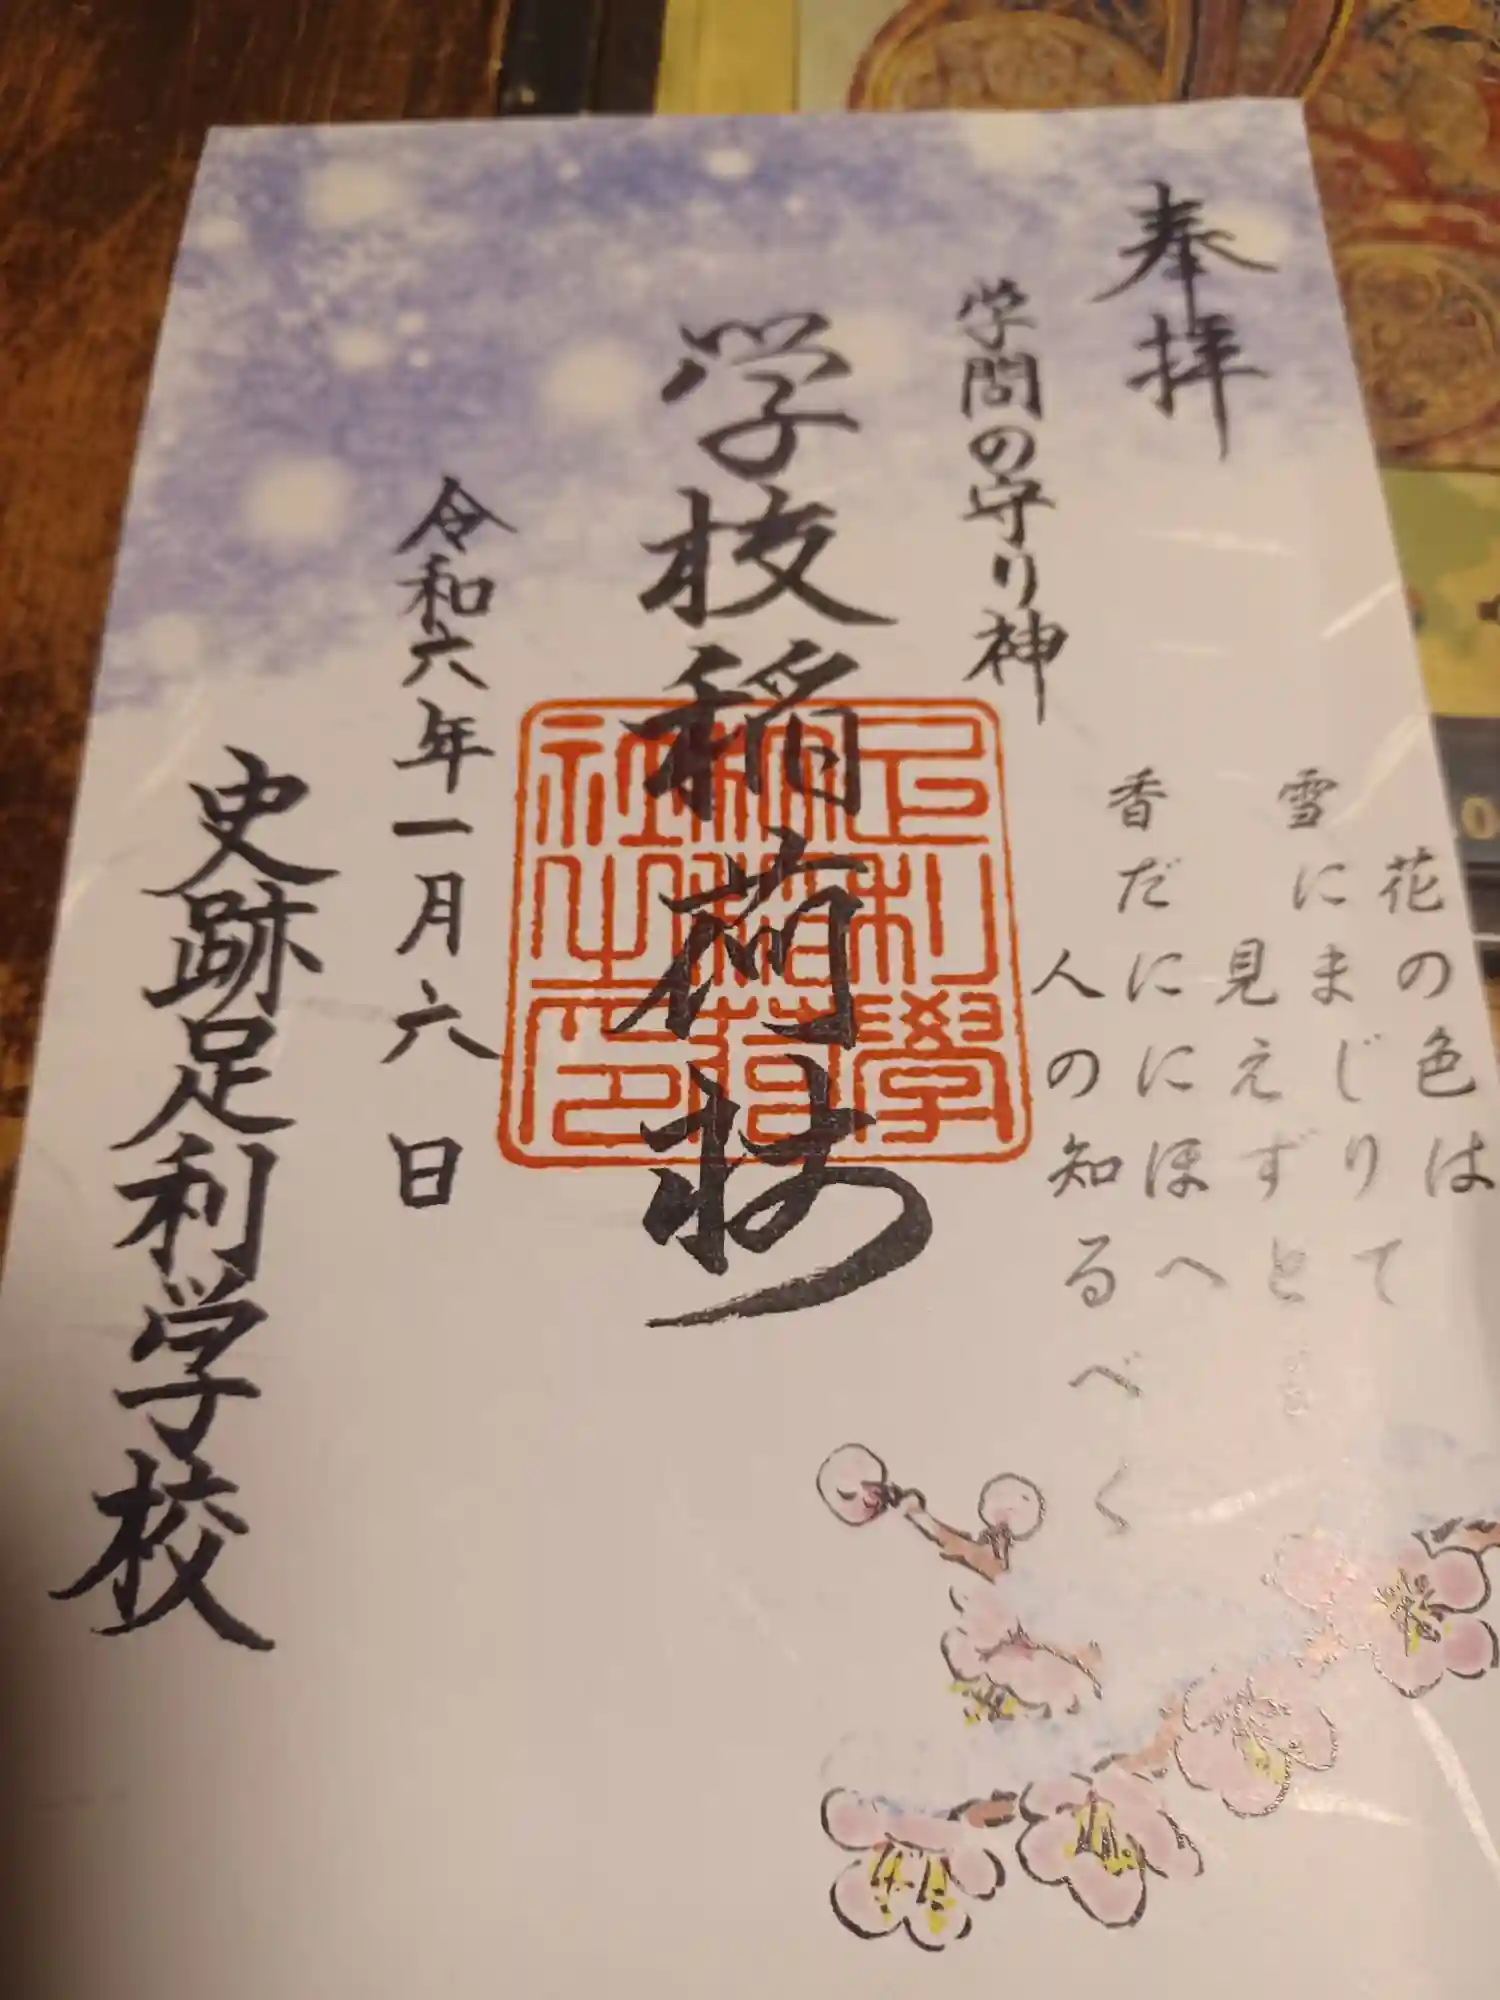 奉拝
学問の守り神
学校稲荷社
令和六年一月六日
史跡足利学校
花の色は
雪にまじりて
見えずとも
香だににほへ
人の知るべく
足利學
校稲荷
社之印